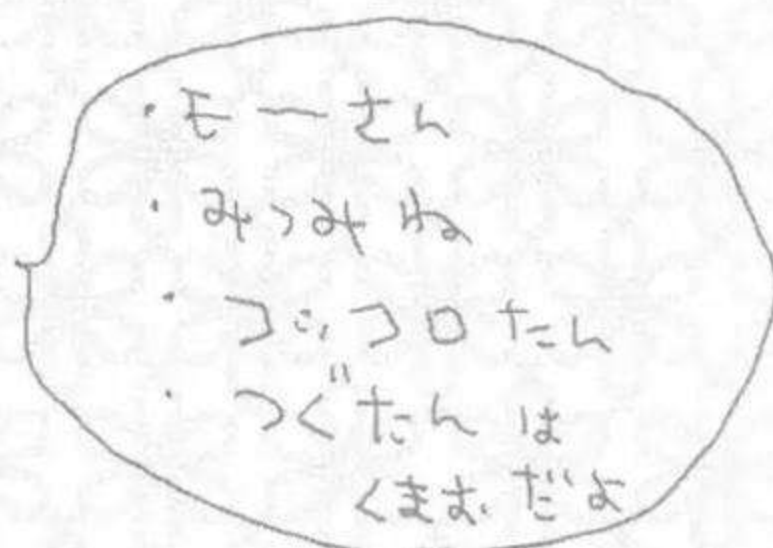 ・モーさん
・みつみね
・コッコロたん
・つぐたんは
くまおだよ